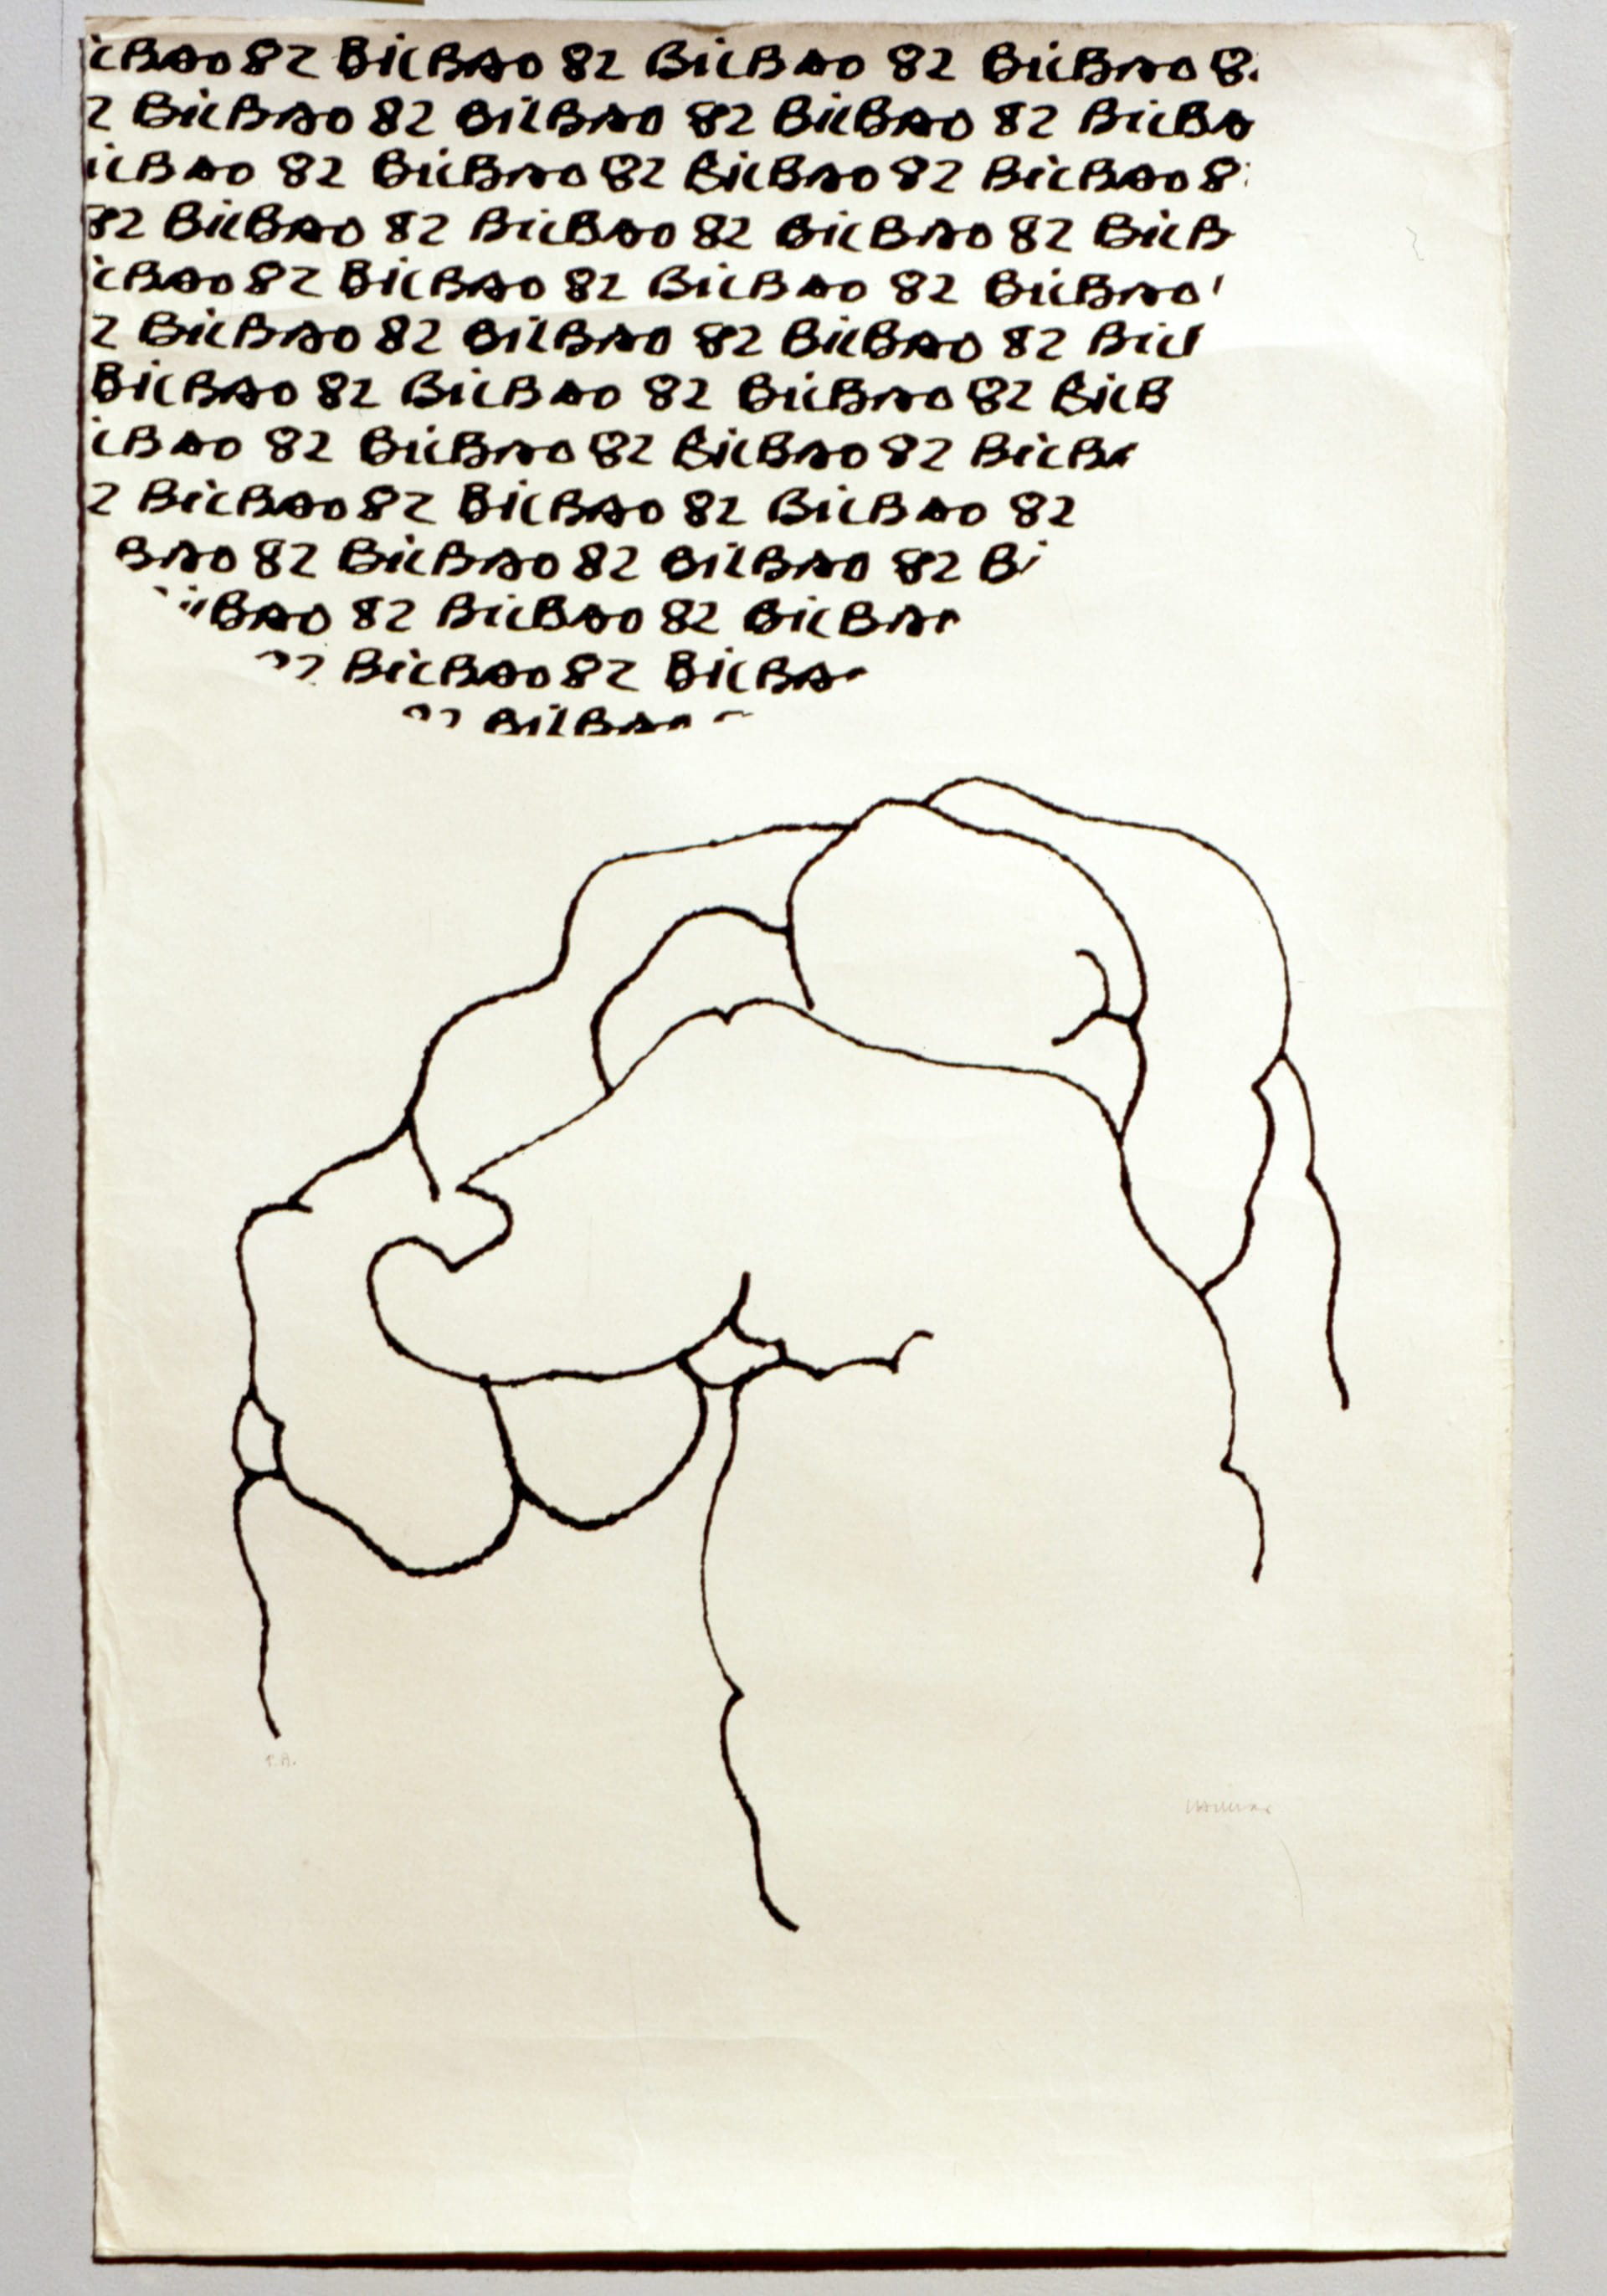 ilBAO 82 BilBAO 82 BilBAO 82 BilBAO 8
2 BilBAO 82 BilBAO 82 BilBAO 82 BilBA
ilBAO 82 BilBAO 82 BilBAO 82 BilBAO 8
82 BilBAO 82 BilBAO 82 BilBAO 82 BilB
ilBAO 82 BilBAO 82 BilBAO 82 BilBAO
2 BilBAO 82 BilBAO 82 BilBAO 82 Bil
BilBAO 82 BilBAO 82 BilBAO 82 BilB
ilBAO 82 BilBAO 82 BilBAO 82 BilBA
2 BilBAO 82 BilBAO 82 BilBAO 82
BAO 82 BilBAO 82 BilBAO 82 Bi
ilBAO 82 BilBAO 82 BilBAO
82 BilBAO 82 BilBA
82 BilBAO
P.A.